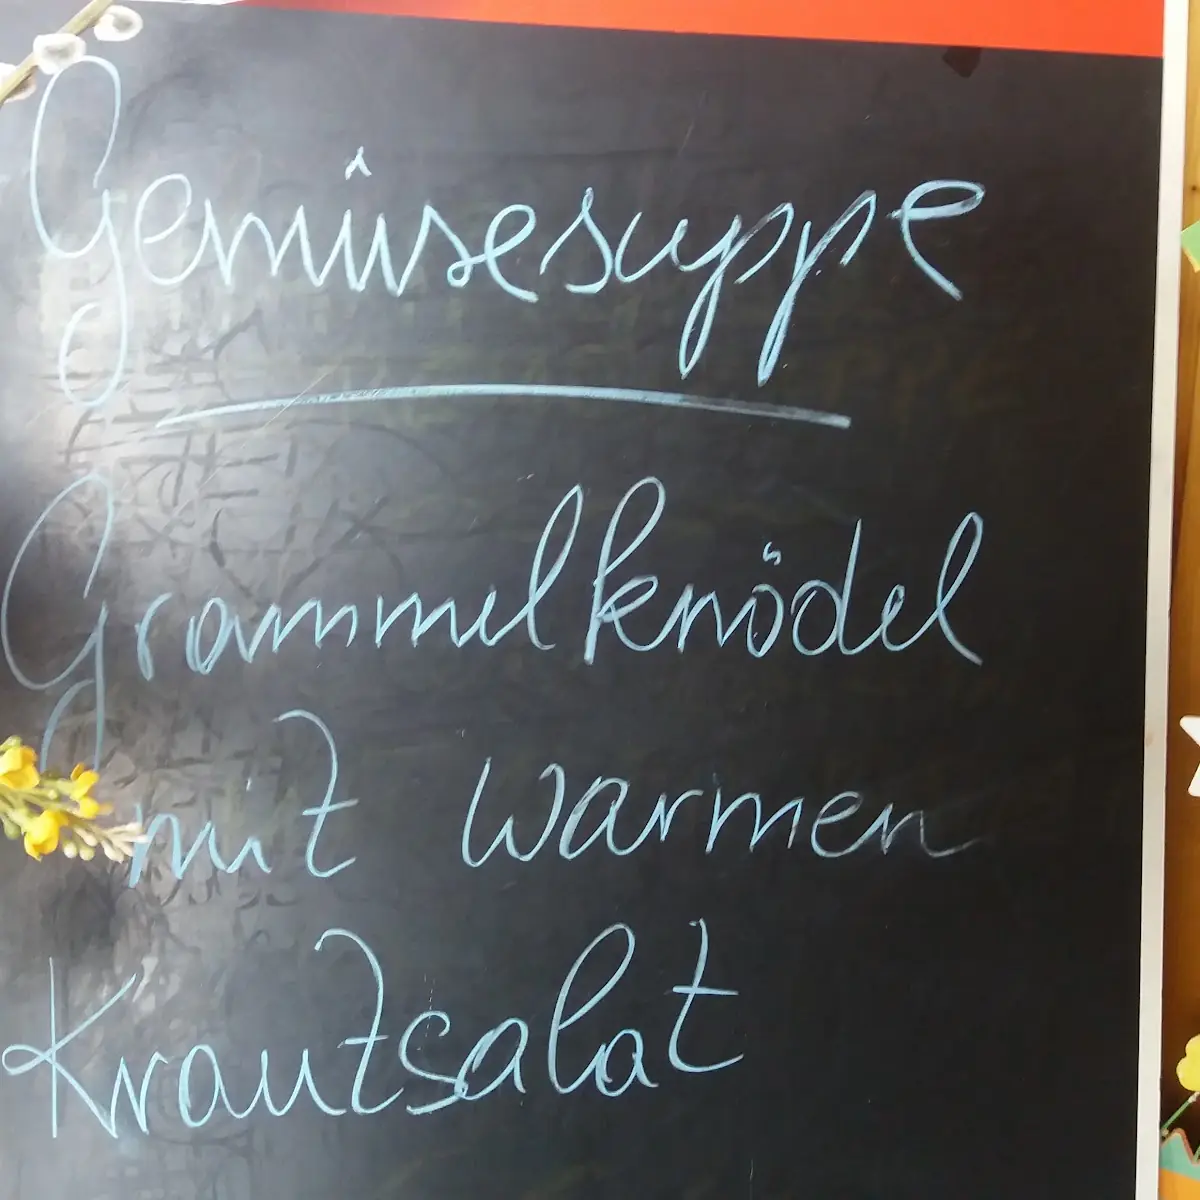 Gemüsesuppe
Grammelknödel
mit warmen
Krautsalat